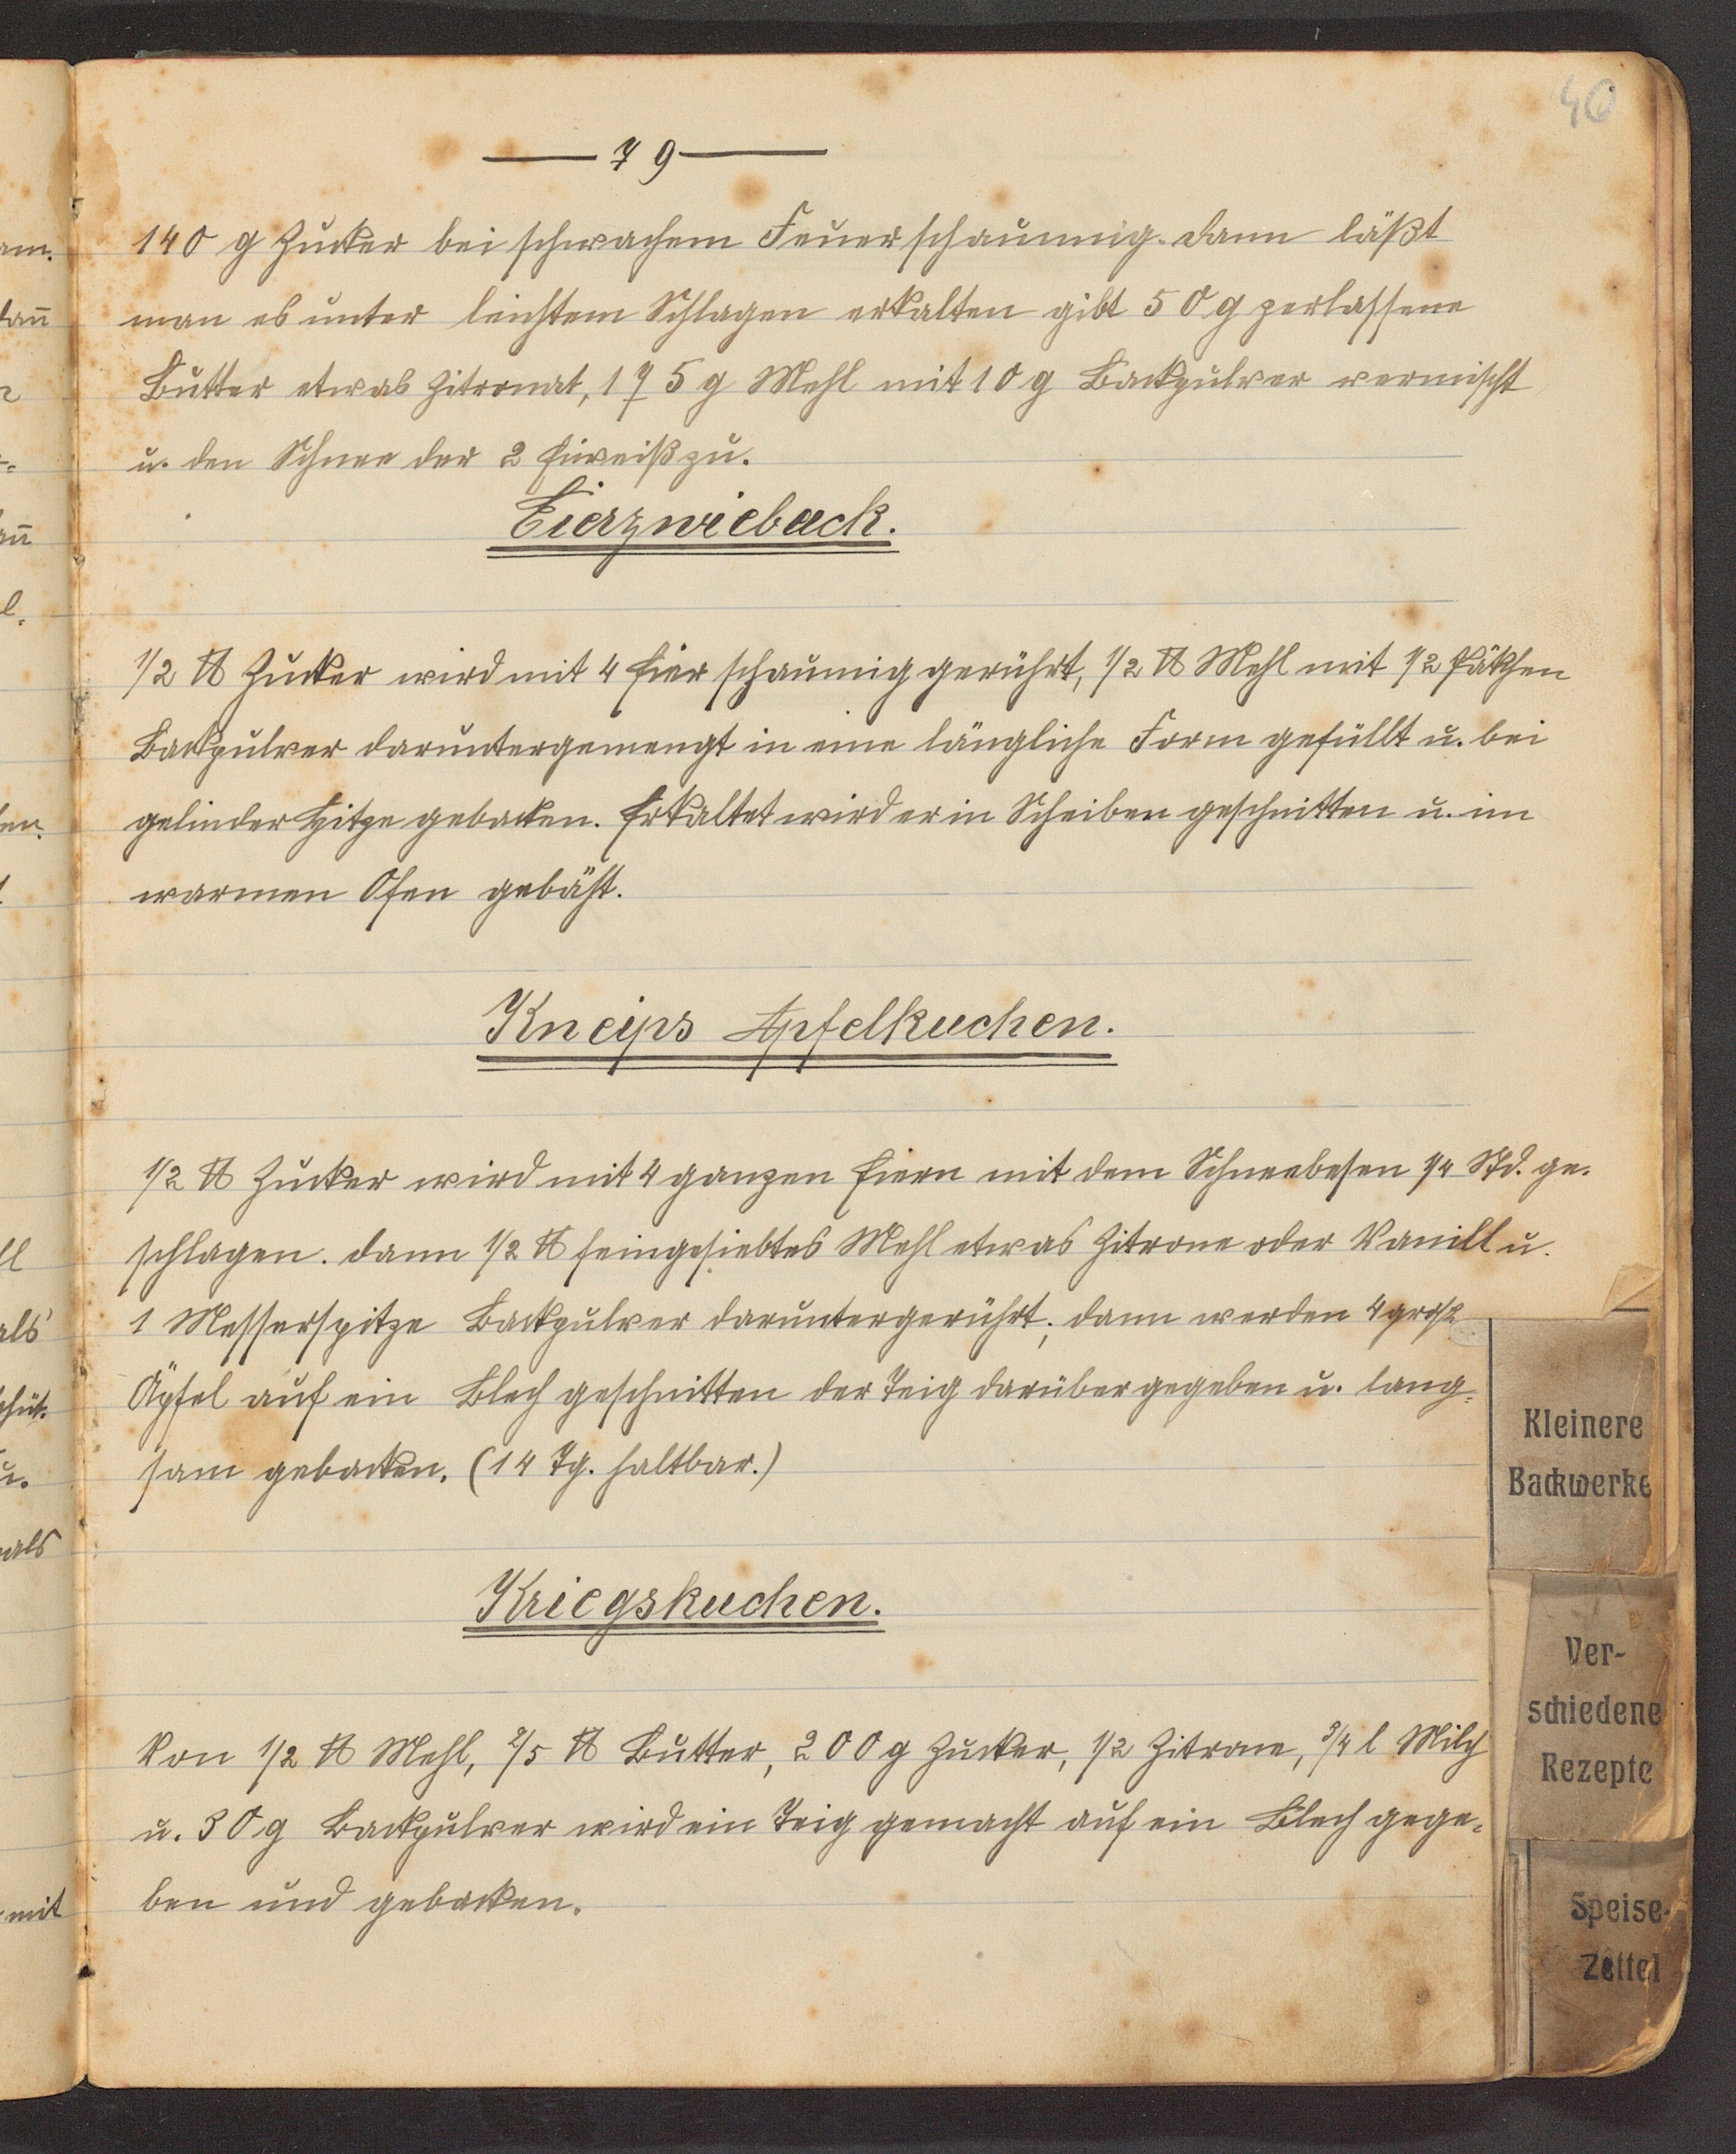 40
79
140 g Zucker bei schwachem Feuer schaumig. dann läßt
man es unter leichtem Schlagen erkalten gibt 50 g zerlassene
Butter etwas Zitronat, 175 g Mehl mit 10 g Backpulver vermischt
u. den Schnee der 2 Eiweiß zu.
Eierzwieback.
1/2 ℔ Zucker wird mit 4 Eier schaumig gerührt, 1/2 ℔ Mehl mit 1/2 Päckchen
Backpulver daruntergemengt in eine längliche Form gefüllt u. bei
gelinder Hitze gebacken. Erkaltet wird er in Scheiben geschnitten u. im
warmen Ofen gebäht.
Kneips Apfelkuchen.
1/2 ℔ Zucker wird mit 4 ganzen Eiern mit dem Schneebesen 1/4 Std. ge-
schlagen. dann 1/2 ℔ feingesiebtes Mehl etwas Zitrone oder Vanill u.
1 Messerspitze Backpulver daruntergerührt; dann werden 4 große
Äpfel auf ein Blech geschnitten der Teig darüber gegeben u. lang-
sam gebacken. (14 Tg. haltbar.)
Kriegskuchen.
Von 1/2 ℔ Mehl, 2/5 ℔ Butter, 200 g Zucker, 1/2 Zitrone, 3/4 l Milch
u. 30 g Backpulver wird ein Teig gemacht auf ein Blech gege-
ben und gebacken.
Kleinere
Backwerke
Ver-
schiedene
Rezepte
Speise-
Zettel